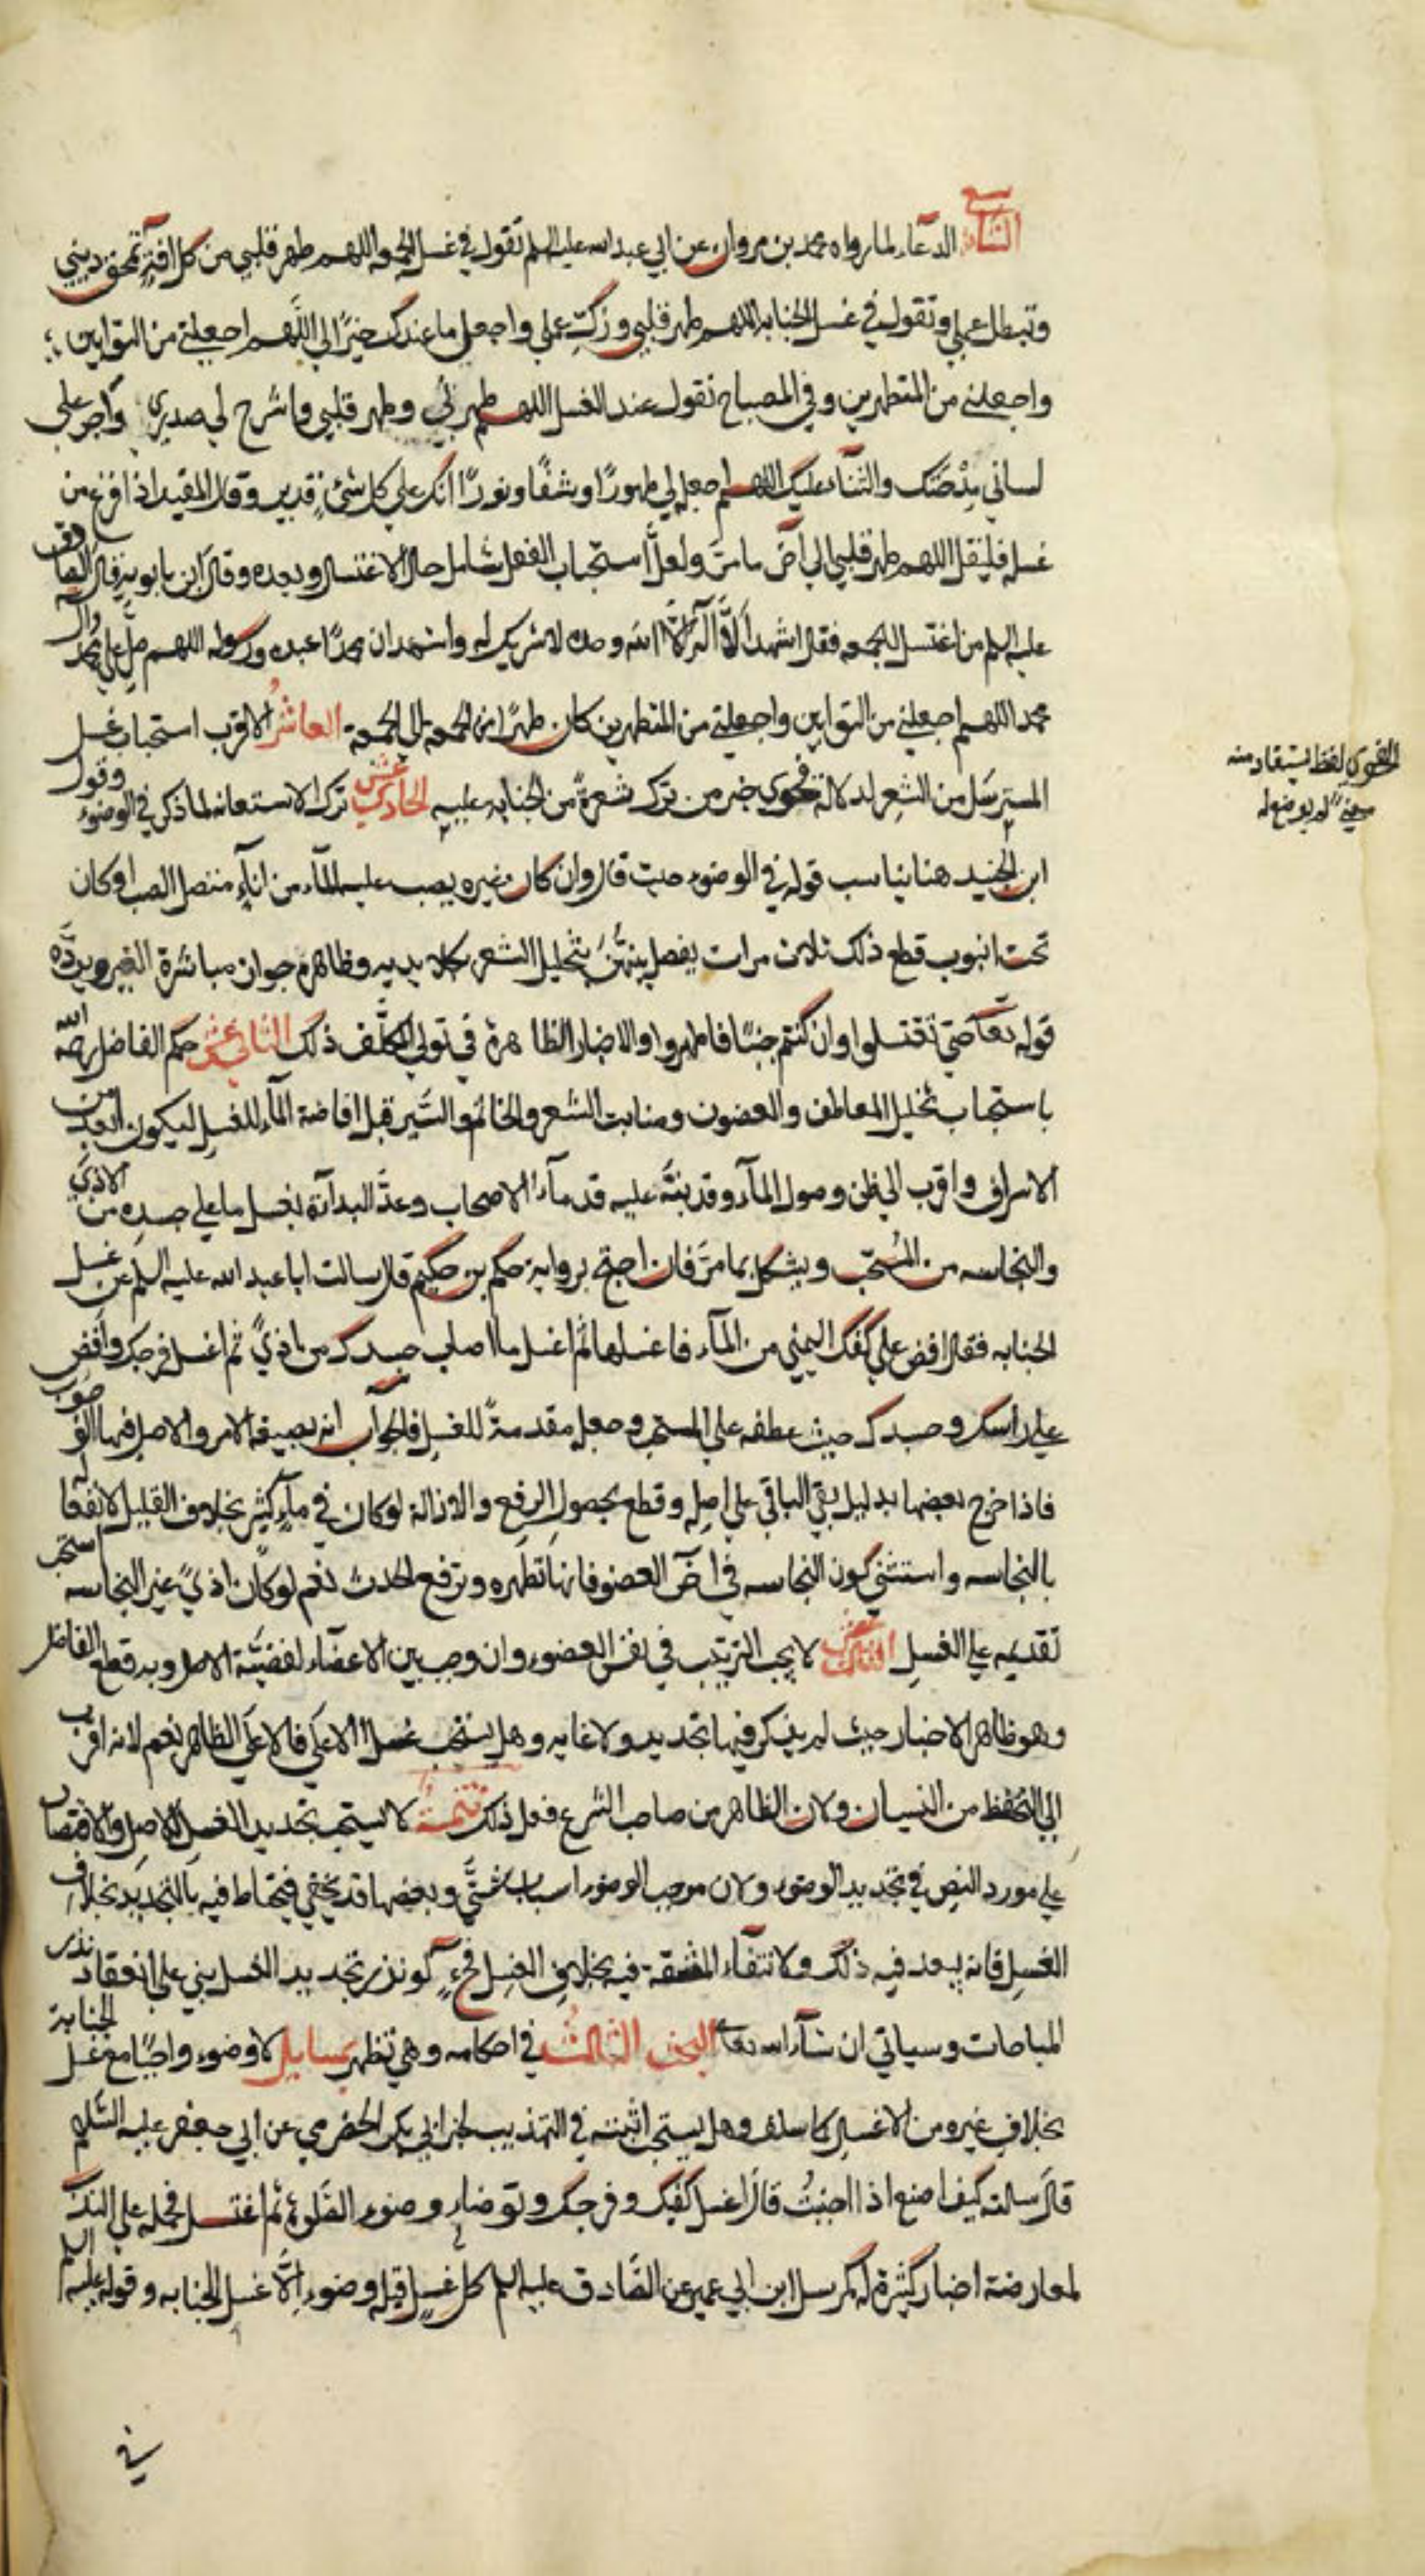 التاسع الدعاء لما رواه محمد بن مروان عن ابي عبد الله عليه السلم تقول في غسل الجمعه اللهم طهر قلبي من كل افة تمحق ديني
وتبطل عملي وتقول في غسل الجنابه اللهم طهر قلبي وزكّ عملي واجعل ما عندك خيرًا لي اللّهم اجعلني من التوابين
واجعلني من المتطهرين وفي المصباح تقول عند الغسل اللهم طهرني وطهر قلبي واشرح لي صدري واجر على
لساني مدحتك والثناء عليك اللهم اجعله لي طهورًا وشفًا ونورًا انك على كل شئ قدير وقال المفيد اذا فرغ من
غسله فليقل اللهم طهر قلبي الى آخر ما مرّ ولعلّ استحباب الفعل شامل حال الاغتسال وبعده وقال ابن بابويه قال الصادق
عليه السلم من اغتسل للجمعه فقال اشهد ان لا اله الا الله وحده لا شريك له واشهد ان محمدًا عبده ورسوله اللهم صلّ على محمد وآل
محمد اللهم اجعلني من التوابين واجعلني من المتطهرين كان طهرًا من الجمعه الى الجمعة العاشر الاقرب استحباب غسل
المسترسل من الشعر لدلالة فحوى خبر من ترك شعرة من الجنابه عليه الحادي عشر ترك الاستعانه لما ذكر في الوضوء وقول
ابن الجنيد هنا يناسب قوله في الوضوء حيث قال وان كان غيره يصب عليه الماء من اناء متصل الصب او كان
تحت انبوب قطع ذلك ثلاث مرات يفصل بينهنّ بتخليل الشعر بكلا يديه وظاهره جواز مباشرة الغير ويردّه
قوله تعالى حتى تغتسلوا وان كنتم جنبًا فاطهروا والاخبار الظاهرة في تولي المكلّف ذلك الثاني عشر حكم الفاضل رحمه الله
باستحباب تخليل المعاطف والغضون ومنابت الشعر والخاتم والسّير قبل افاضة الماء للغسل ليكون ابعد من
الاسراف واقرب الى ظن وصول الماء وقد نبّه عليه قدماء الاصحاب وعدّ البدأة بغسل ما على جسده من الاذي
والنجاسه من المُستحبّ ويشكل بما مرّ فان احتج برواية حكم بن حكيم قال سالت ابا عبد الله عليه السلم عن غسل
الجنابه فقال افض على كفك اليمنى من الماء فاغسلها ثم اغسل ما اصاب جسدك من اذيً ثم اغسل فرجك وافض
على راسك وجسدك حيث عطفه على المستحب وجعله مقدمةً للغسل فالجواب انه بصيغة الامر والاصل فيها الوجوب
فاذا خرج بعضها بدليل بقي الباقي على اصله وقطع بحصول الرفع والازالة لو كان في ماء كثير بخلاف القليل لانفعاله
بالنجاسه واستثنى كون النجاسه في آخر العضو فانها تطهره وترفع الحدث نعم لو كان اذيً غير النجاسه استحب
تقديمه على الغسل الثالث عشر لا يجب الترتيب في نفس العضو وان وجب بين الاعضاء لقضيّة الاصل وبه قطع الفاضل
وهو ظاهر الاخبار حيث لم يذكر فيها تحديد ولا غايه وهل يستحب غسل الاعلى فالاعلى الظاهر نعم لانه اقرب
الى التحفظ من النسيان ولان الظاهر من صاحب الشرع فعل ذلك تتمة لا يستحب تجديد الغسل للاصل والاقتصار
على مورد النص في تجديد الوضوء ولان موجب الوضوء اسباب شتّى وبعضها قد يخفي فيحتاط فيه بالتجديد بخلاف
الغسل فانه يبعد فيه ذلك ولانتفاء المشقة فيه بخلاف الغسل فحينئذ لو نذر تجديد الغسل بني على انعقاد نذر
المباحات وسياتي ان شاء الله تعالى البحث الثالث في احكامه وهي تظهر بمسايل لا وضوء واجبًا مع غسل الجنابة
بخلاف غيره من الاغسال كما سلف وهل يستحب اثبته في التهذيب لخبر ابي بكر الحضرمي عن ابي جعفر عليه السّلم
قال سالته كيف اصنع اذا اجنبتُ قال اغسل كفك وفرجك وتوضا وضوء الصّلوة ثم اغتسل فحمله على الندب
لمعارضة اخبار كثيرة له كمرسل ابن ابي عمير عن الصّادق عليه السلم كل غسل قبله وضوء الّا غسل الجنابه وقوله عليه السلم
في
الفحوى لفظ يستفاد منه
معنىً لم يوضع له